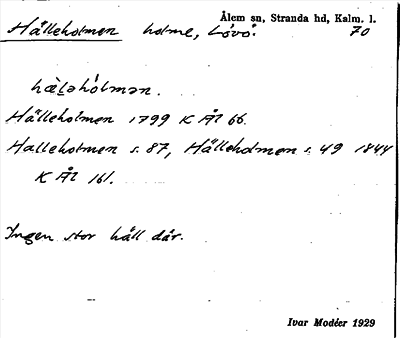 Ålem sn, Stranda hd, Kalm. l.
Hälleholmen holme, Lövö. 70
hæ̀ḷəhól̀mən.
Hälleholmen 1799 K Ål 66.
Halleholmen s. 87, Hälleholmen s. 49 1844
K Ål 161.
Ingen stor häll där.
Ivar Modéer 1929